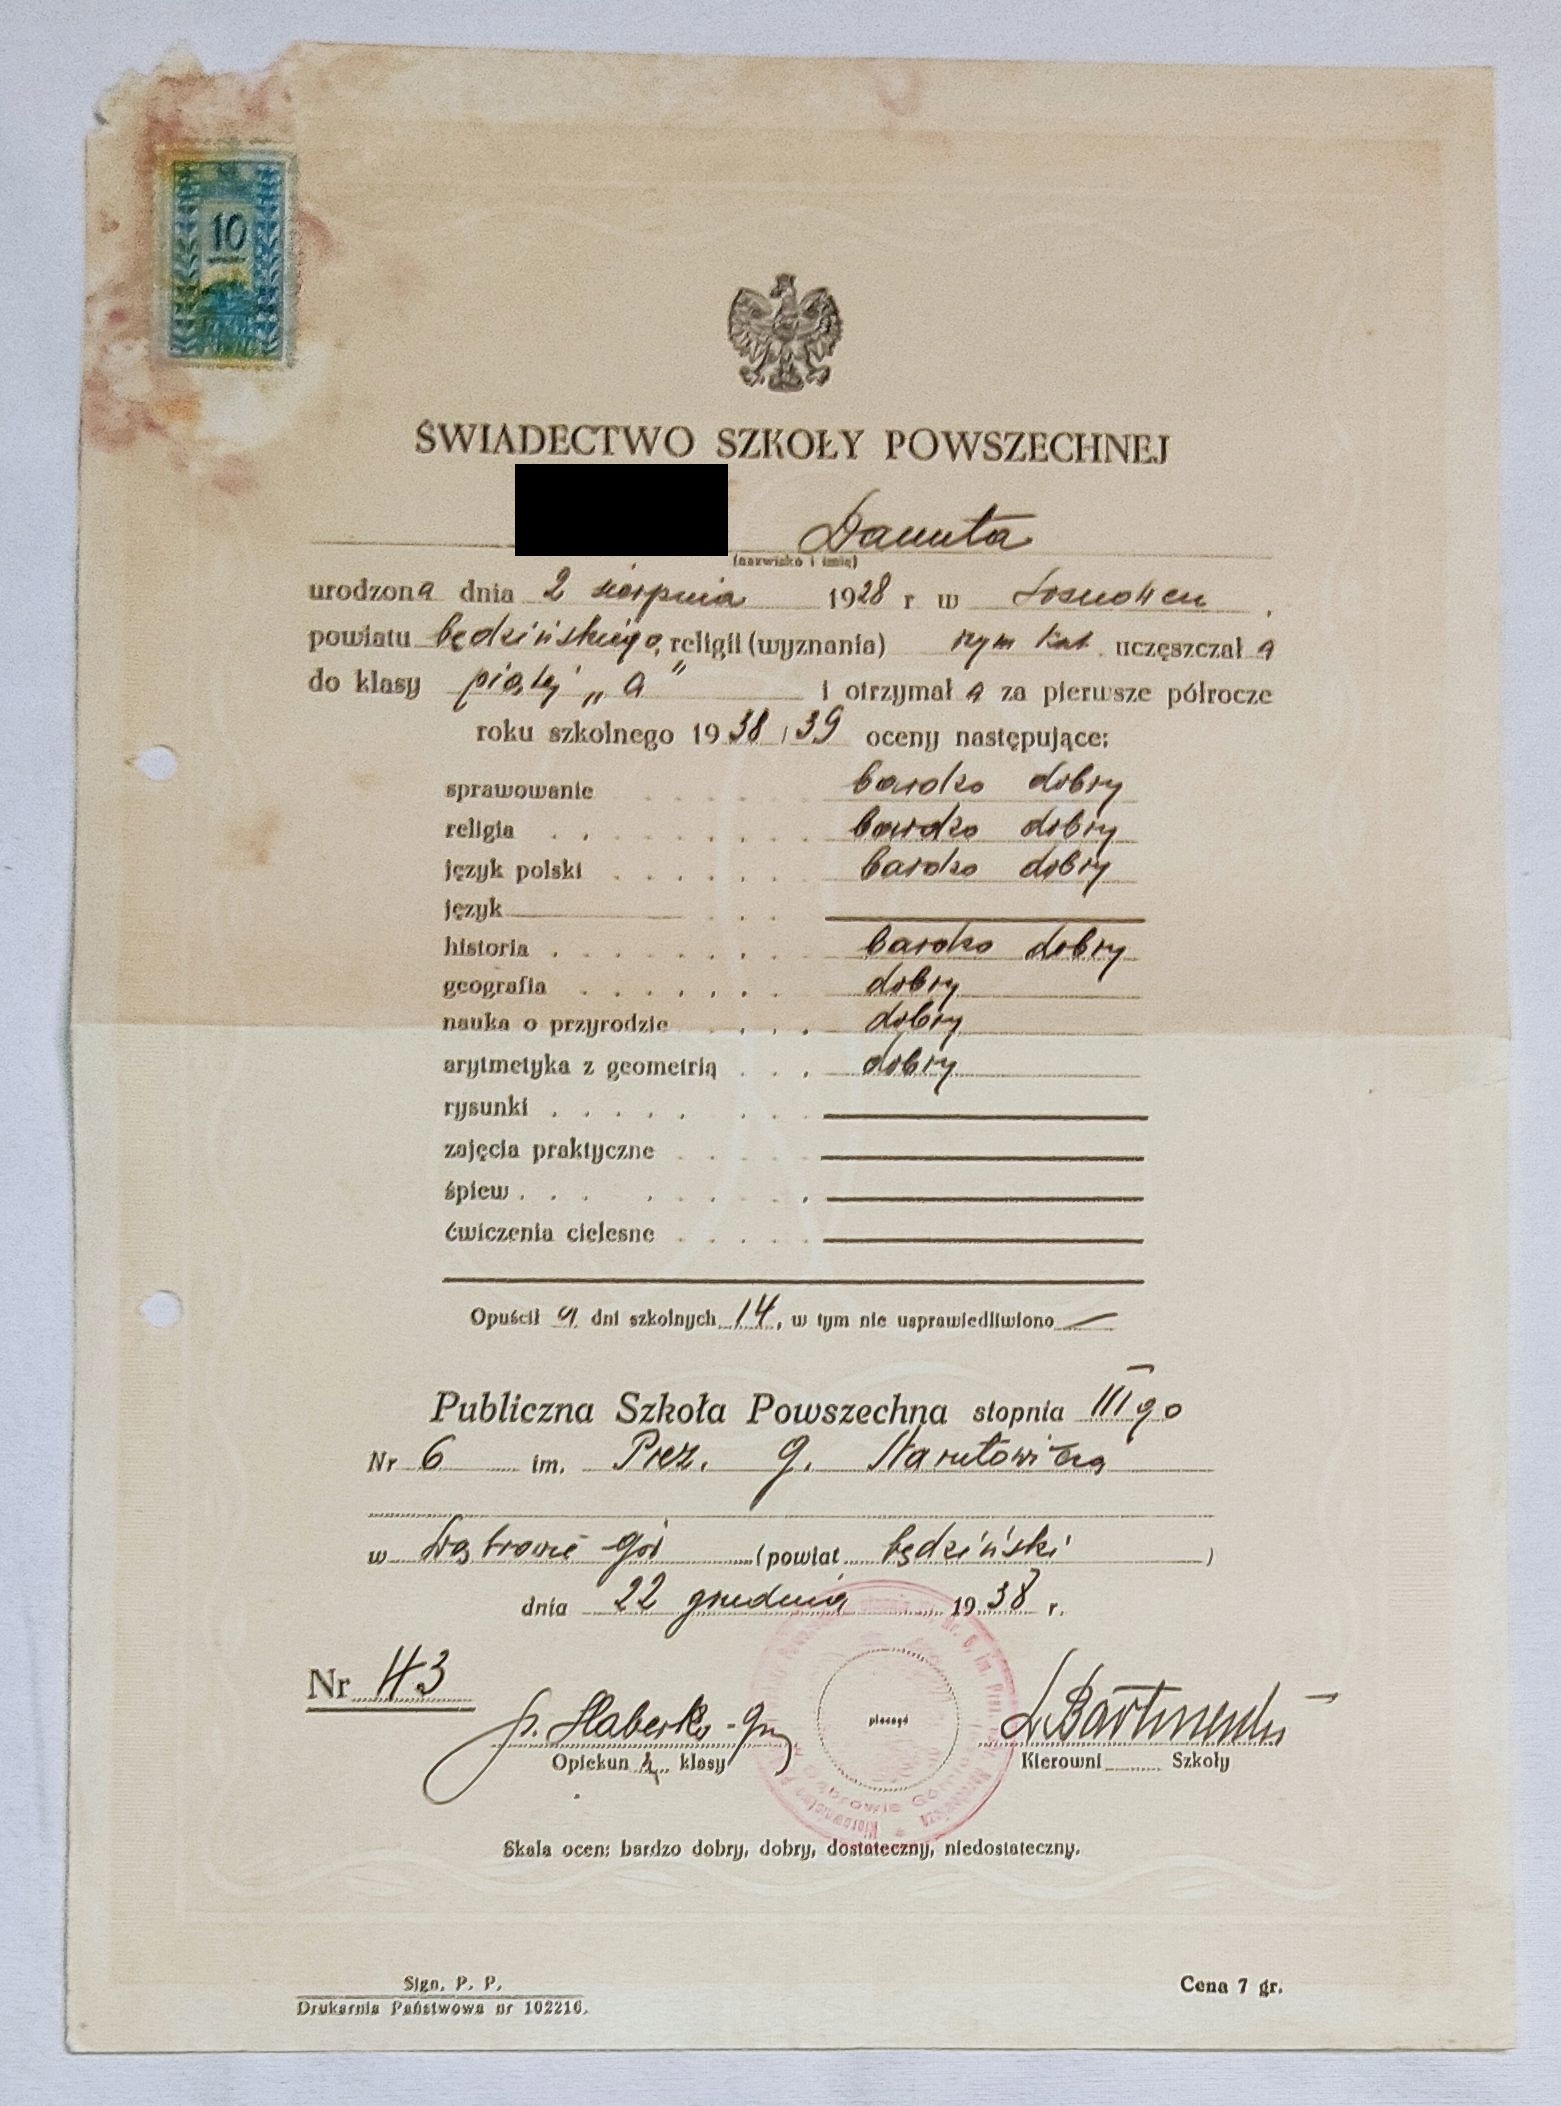 10
ŚWIADECTWO SZKOŁY POWSZECHNEJ
Danuta
(nazwisko i imię)
urodzona dnia 2 sierpnia 1928 r w Sosnowcu,
powiatu będzińskiego, religii (wyznania) rzym kat. uczęszczał a
do klasy piątej „a" i otrzymał a za pierwsze półrocze
roku szkolnego 1938/39 oceny następujące:
sprawowanie bardzo dobry
religia bardzo dobry
język polski bardzo dobry
język
historia bardzo dobry
geografia dobry
nauka o przyrodzie dobry
arytmetyka z geometrią dobry
rysunki
zajęcia praktyczne
śpiew
ćwiczenia cielesne
Opuścił a dni szkolnych 14, w tym nie usprawiedliwiono —
Publiczna Szkoła Powszechna stopnia III go
Nr 6 im. Prez. G. Narutowicza
w Dąbrowie Gór (powiat będziński)
dnia 22 grudnia 1938 r.
Nr 43
pieczęć
Opiekun klasy
Kierowni Szkoły
Skala ocen: bardzo dobry, dobry, dostateczny, niedostateczny.
Sign. P. P.
Drukarnia Państwowa nr 102216.
Cena 7 gr.